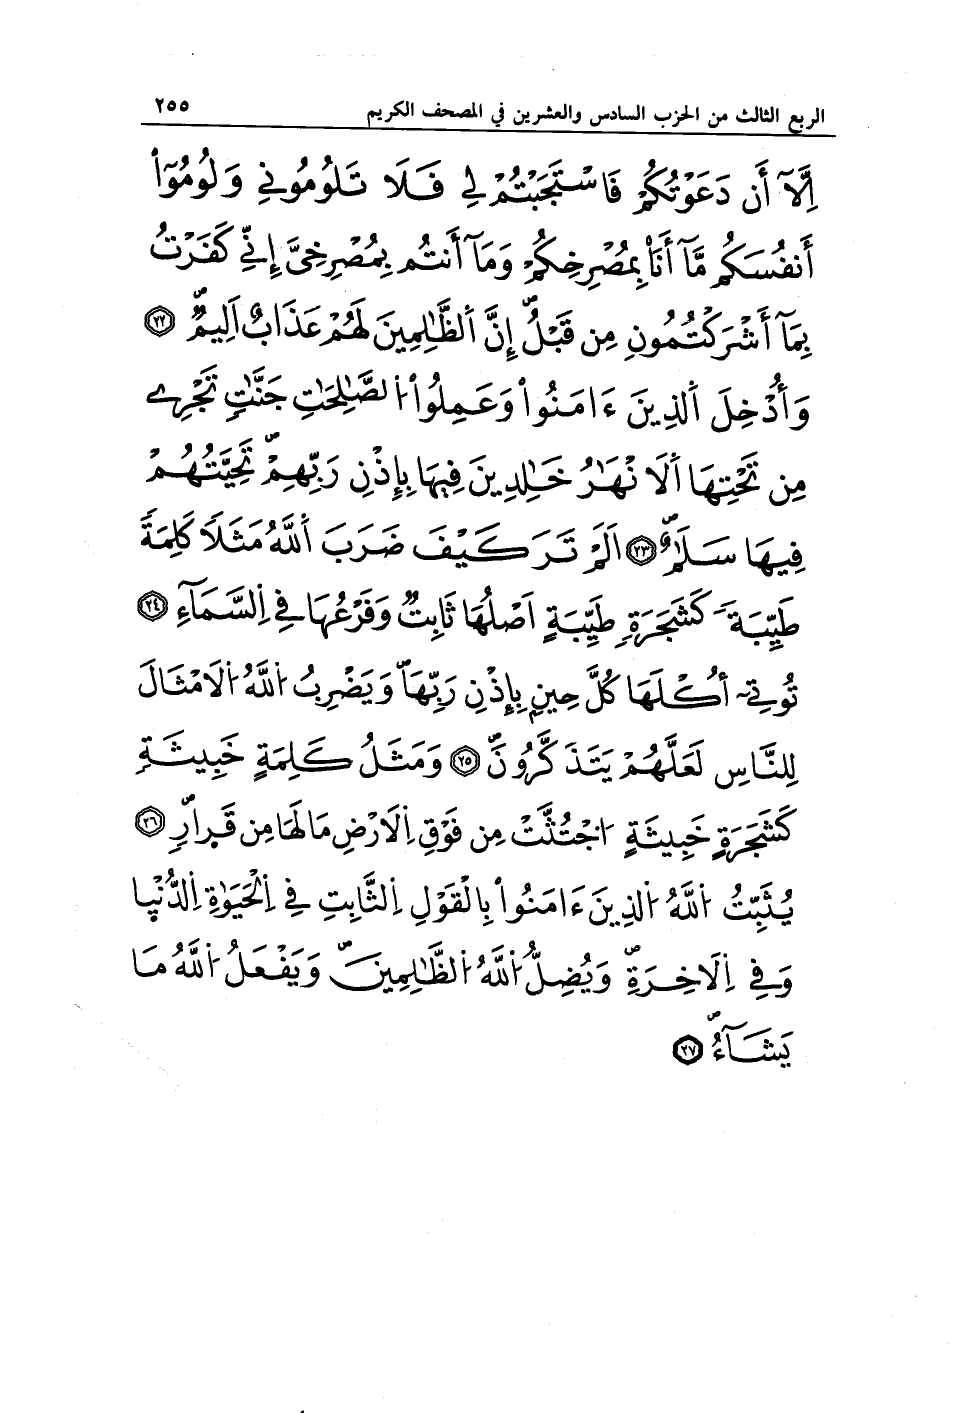 الربع الثالث من الحزب السادس والعشرين في المصحف الكريم ٢٥٥
إِلَّآ أَن دَعَوْتُكُمْ فَاسْتَجَبْتُمْ لِي فَلَا تَلُومُونِي وَلُومُوٓاْ
أَنفُسَكُم مَّآ أَنَاْ بِمُصْرِخِكُمْ وَمَآ أَنتُم بِمُصْرِخِيَّ إِنِّي كَفَرْتُ
بِمَآ أَشْرَكْتُمُونِ مِن قَبْلُ إِنَّ اَلظَّٰلِمِينَ لَهُمْ عَذَابٌ اَلِيمٌ ٢٢
وَأُدْخِلَ اَلذِينَ ءَامَنُواْ وَعَمِلُواْ اُلصَّٰلِحَٰتِ جَنَّٰتٖ تَجْرِے
مِن تَحْتِهَا اَلَانْهَٰرُ خَٰلِدِينَ فِيهَا بِإِذْنِ رَبِّهِمْ تَحِيَّتُهُمْ
فِيهَا سَلَٰمٌ ٢٣ اَلَمْ تَرَ كَيْفَ ضَرَبَ اَللَّهُ مَثَلٗا كَلِمَةٗ
طَيِّبَةٗ كَشَجَرَةٖ طَيِّبَةٍ اَصْلُهَا ثَابِتٞ وَفَرْعُهَا فِي اِلسَّمَآءِ ٢٤
تُوتِےٓ أُكْلَهَا كُلَّ حِينِۢ بِإِذْنِ رَبِّهَا وَيَضْرِبُ اُللَّهُ اُلَامْثَالَ
لِلنَّاسِ لَعَلَّهُمْ يَتَذَكَّرُونَ ٢٥ وَمَثَلُ كَلِمَةٍ خَبِيثَةٖ
كَشَجَرَةٍ خَبِيثَةٍ اُجْتُثَّتْ مِن فَوْقِ اِلَارْضِ مَا لَهَا مِن قَرارٖ ٢٦
يُثَبِّتُ اُللَّهُ اُلذِينَ ءَامَنُواْ بِالْقَوْلِ اِلثَّابِتِ فِي اِلْحَيَوٰةِ اِلدُّنْيٖا
وَفِي اِلَاخِرَةِ وَيُضِلُّ اُللَّهُ اُلظَّٰلِمِينَ وَيَفْعَلُ اُللَّهُ مَا
يَشَآءُ ٢٧